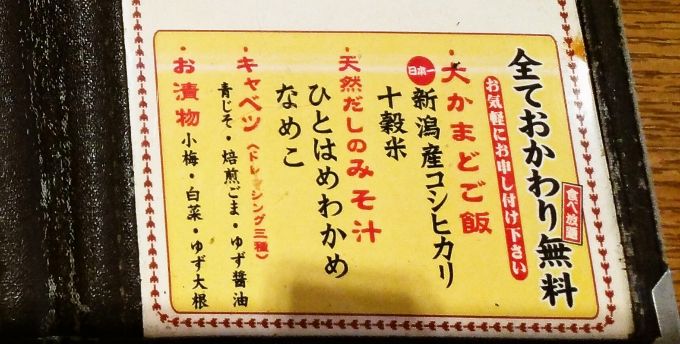 全ておかわり無料
食べ放題
お気軽にお申し付け下さい
・大かまどご飯
日本一
新潟産コシヒカリ
十穀米
・天然だしのみそ汁
ひとはめわかめ
なめこ
・キャベツ（ドレッシング三種）
青じそ・焙煎ごま・ゆず醤油
・お漬物
小梅・白菜・ゆず大根